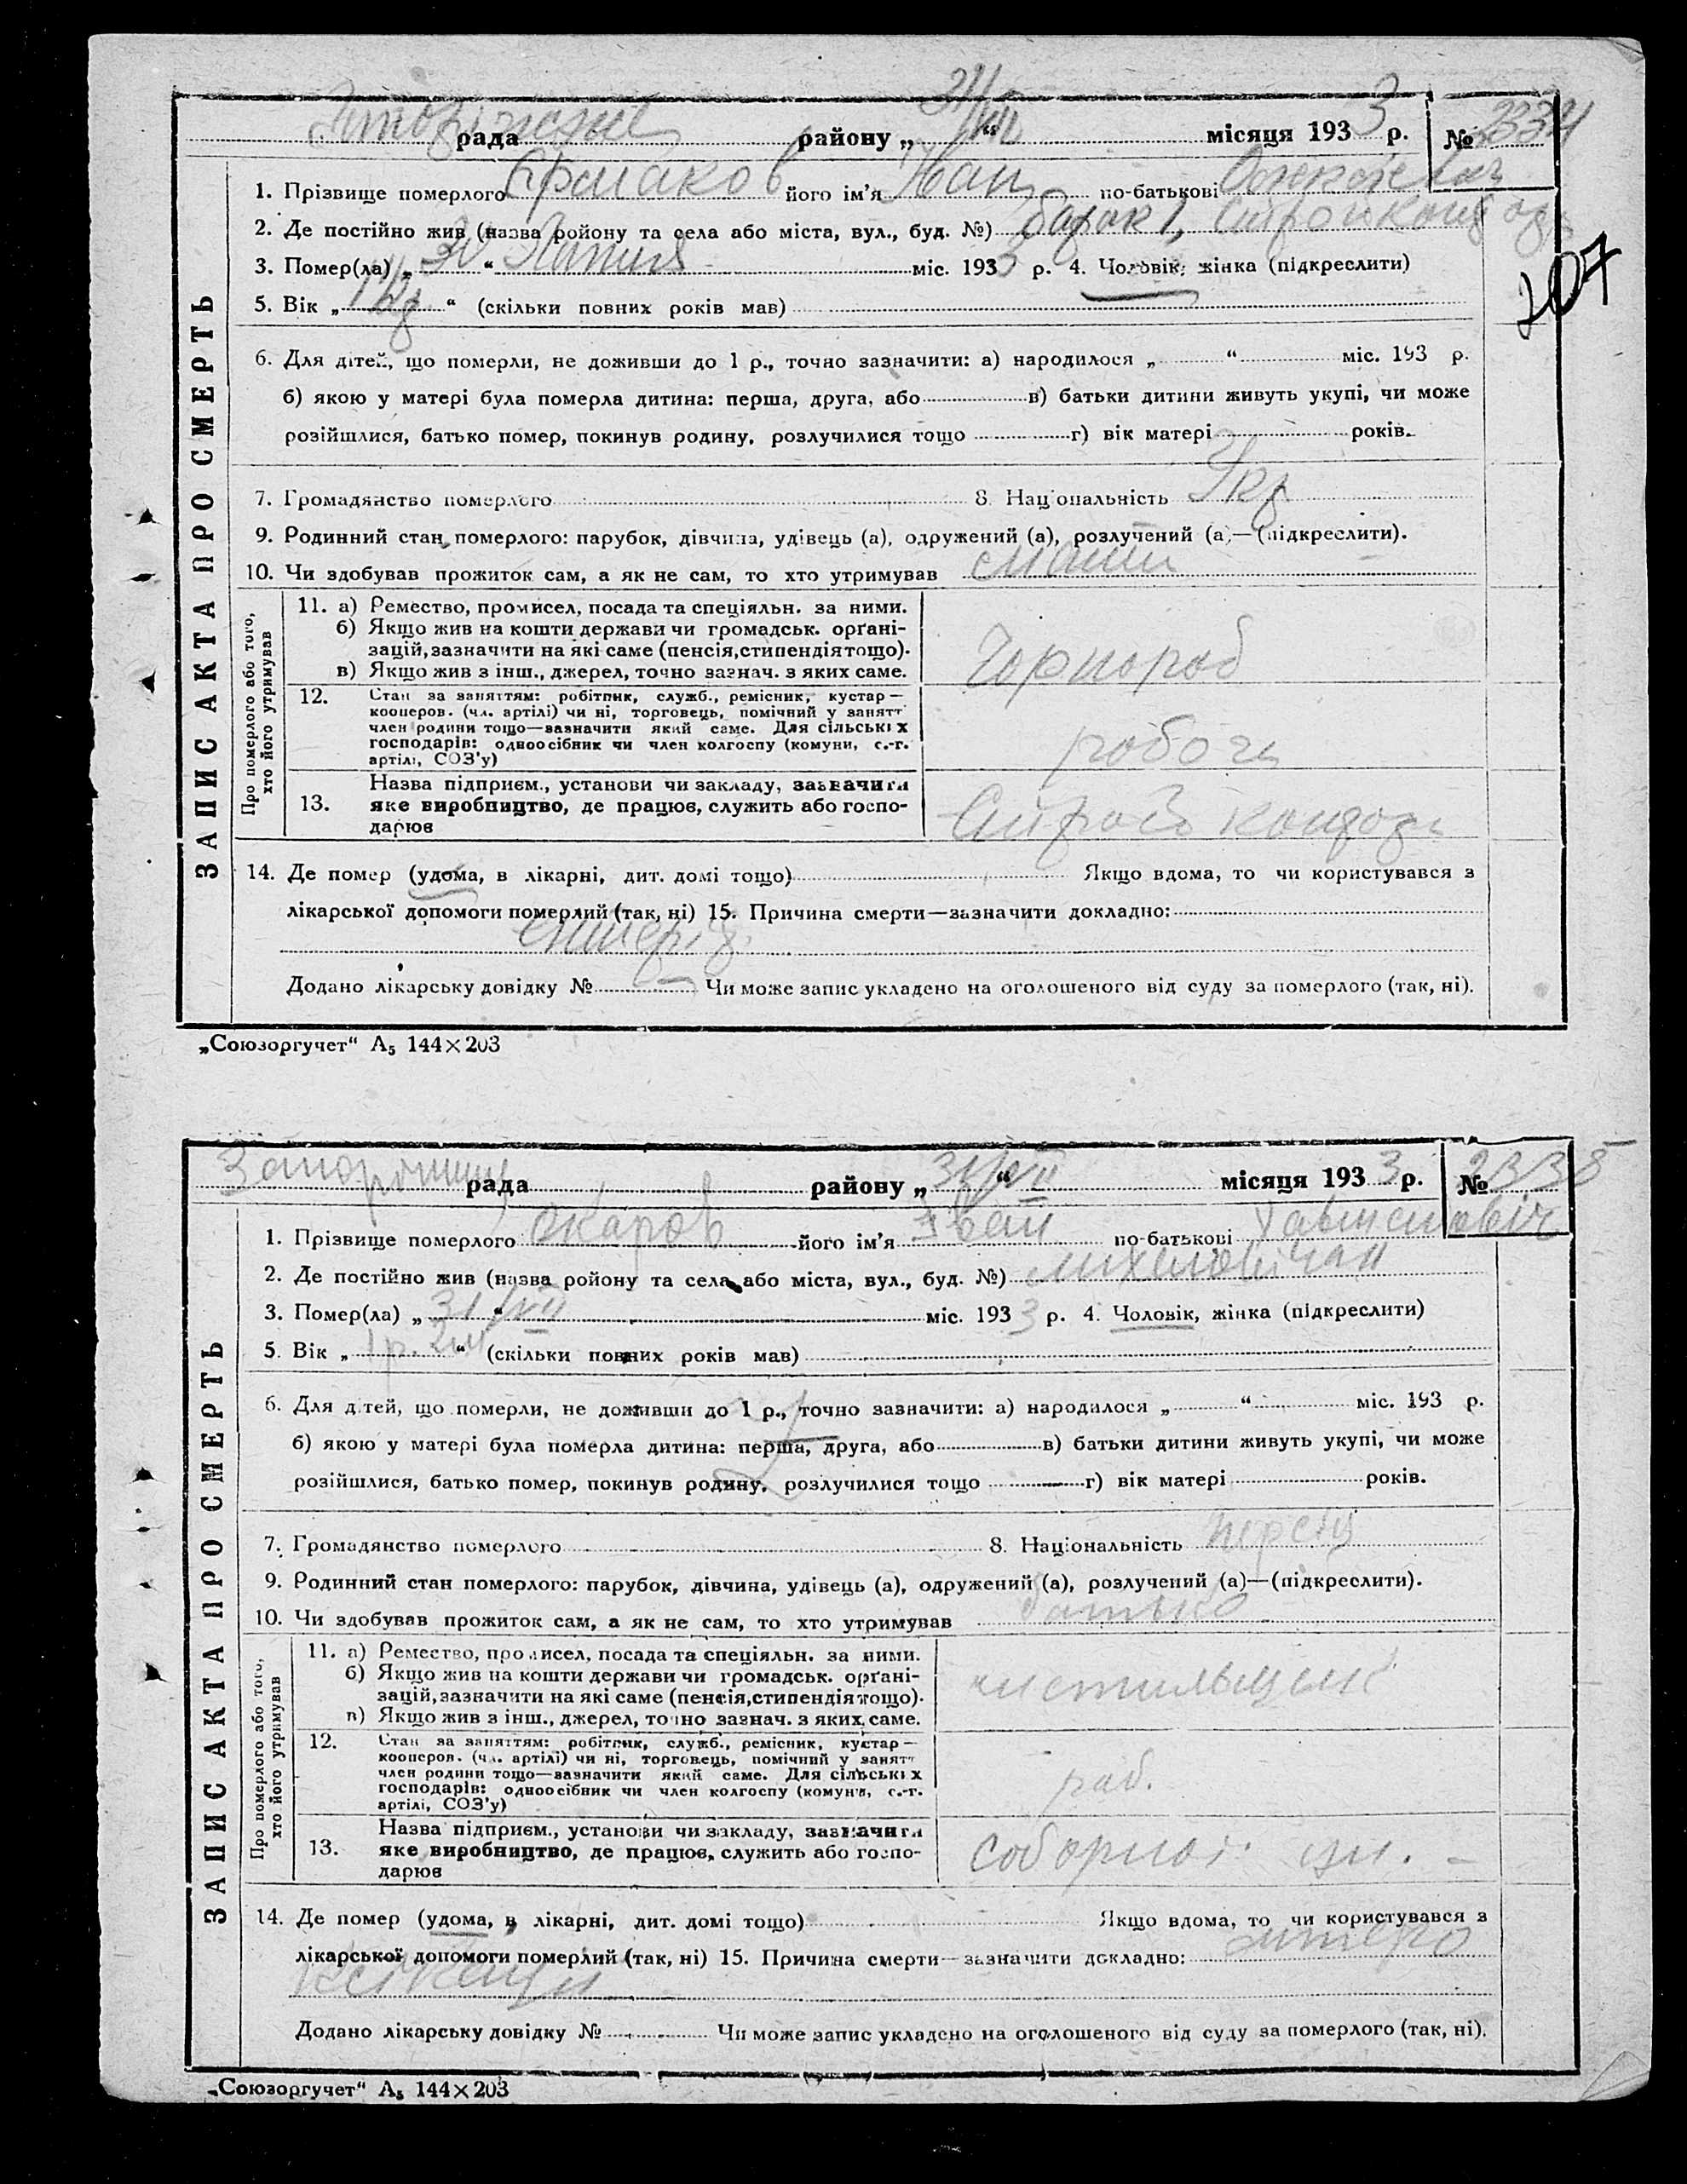 рада району „ 31/VII “ місяця 1933 р. № 2334
1. Прізвище померлого Єрмаков його ім’я Іван по-батькові
2. Де постійно жив (назва ройону та села або міста, вул., буд. №) барак 1,
3. Помер(ла) „ 30 “ Липня міс. 1933 р. 4. Чоловік, жінка (підкреслити)
5. Вік „ “ (скільки повних років мав)
207
6. Для дітей, що померли, не доживши до 1 р., точно зазначити: а) народилося „ “ міс. 193 р.
б) якою у матері була померла дитина: перша, друга, або в) батьки дитини живуть укупі, чи може
розійшлися, батько помер, покинув родину, розлучилися тощо г) вік матері років.
7. Громадянство померлого 8. Національність Укр
9. Родинний стан померлого: парубок, дівчина, удівець (а), одружений (а), розлучений (а)—(підкреслити).
10. Чи здобував прожиток сам, а як не сам, то хто утримував
ЗАПИС АКТА ПРО СМЕРТЬ
Про померлого або того,
хто його утримував
11. а) Ремество, промисел, посада та спеціяльн. за ними.
б) Якщо жив на кошти держави чи громадськ. орґані-
зацій, зазначити на які саме (пенсія, стипендія тощо).
в) Якщо жив з інш., джерел, точно зазнач. з яких саме.
Чорнороб
12. Стан за заняттям: робітник, служб., ремісник, кустар—
кооперов. (чл. артілі) чи ні, торговець, помічний у занятт
член родини тощо—зазначити який саме. Для сільських
господарів: одноосібник чи член колгоспу (комуни, с.-г.
артілі, СОЗ’у)
робочи
13. Назва підприєм., установи чи закладу, зазначити
яке виробництво, де працює, служить або госпо-
дарює
14. Де помер (удома, в лікарні, дит. домі тощо) Якщо вдома, то чи користувався з
лікарської допомоги померлий (так, ні) 15. Причина смерти—зазначити докладно:
Додано лікарську довідку № — Чи може запис укладено на оголошеного від суду за померлого (так, ні).
„Союзоргучет“ А₅ 144×203
рада району „ 31/VII “ місяця 1933 р. № 2335
1. Прізвище померлого Окаров його ім’я Іван по-батькові
2. Де постійно жив (назва ройону та села або міста, вул., буд. №)
3. Помер(ла) „ 31/VII “ міс. 1933 р. 4. Чоловік, жінка (підкреслити)
5. Вік „ 1 р. 2 м “ (скільки повних років мав)
6. Для дітей, що померли, не доживши до 1 р., точно зазначити: а) народилося „ “ міс. 193 р.
б) якою у матері була померла дитина: перша, друга, або в) батьки дитини живуть укупі, чи може
розійшлися, батько помер, покинув родину, розлучилися тощо г) вік матері років.
7. Громадянство померлого 8. Національність персіц
9. Родинний стан померлого: парубок, дівчина, удівець (а), одружений (а), розлучений (а)—(підкреслити).
10. Чи здобував прожиток сам, а як не сам, то хто утримував батько
ЗАПИС АКТА ПРО СМЕРТЬ
Про померлого або того,
хто його утримував
11. а) Ремество, промисел, посада та спеціяльн. за ними.
б) Якщо жив на кошти держави чи громадськ. орґані-
зацій, зазначити на які саме (пенсія, стипендія тощо).
в) Якщо жив з інш., джерел, точно зазнач. з яких саме.
чистильщик
12. Стан за заняттям: робітник, служб., ремісник, кустар—
кооперов. (чл. артілі) чи ні, торговець, помічний у занятт
член родини тощо—зазначити який саме. Для сільських
господарів: одноосібник чи член колгоспу (комуни, с.-г.
артілі, СОЗ’у)
раб.
13. Назва підприєм., установи чи закладу, зазначити
яке виробництво, де працює, служить або госпо-
дарює
14. Де помер (удома, в лікарні, дит. домі тощо) Якщо вдома, то чи користувався з
лікарської допомоги померлий (так, ні) 15. Причина смерти—зазначити докладно:
Додано лікарську довідку № Чи може запис укладено на оголошеного від суду за померлого (так, ні).
„Союзоргучет“ А₅ 144×203